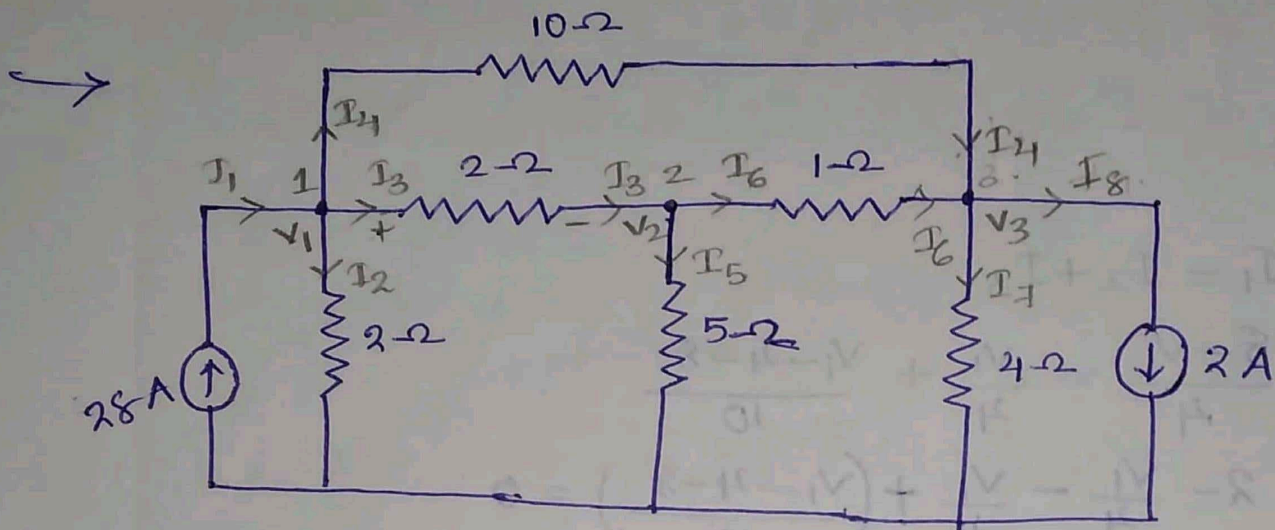 10Ω
I4
I4
I1 1 I3 2Ω I3 2 I6 1Ω 3 I8
V1 + - V2 I6 V3
I2 I5 I7
28A 2Ω 5Ω 4Ω 2A